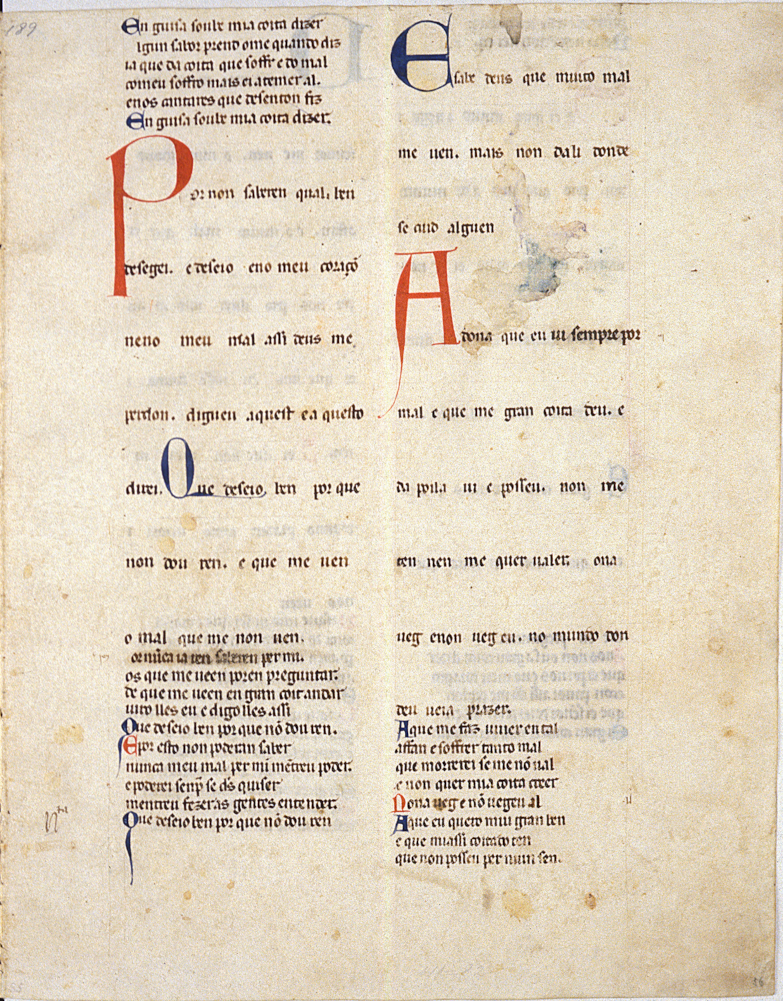 189
En guisa soube mia coita dizer
algun sabor prend ome quando diz
ia que da coita que soffr e do mal
comeu soffro mais ei a temer al.
e nos cantares que desenton fiz
En guisa soube mia coita dizer.
Por non saberen qual ben
desegei. e deseio eno meu coraçõ
neno meu mal assi deus me
perdon. digueu aquest e a questo
direi. Que deseio ben por que
non dou ren. e que me uen
o mal que me non uen.
os que me ueen poren preguntar.
de que me ueen en gran coit andar
uiuo lles eu e digo lles assi
Que deseio ben por que nõ dou ren.
E por esto non poderan saber
nunca meu mal per mi
e poderei senp̄ se ds̄ quiser
mentreu
Que deseio ben por que nõ dou ren
E sabe deus que muito mal
me uen. mais non dali donde
se cuid alguen
A dona que eu ui sempre por
mal e que me gran coita deu. e
da poila ui e posseu. non me
ten nen me quer ualer. ona
ueg e non ueg eu. no mundo don
deu ueia prazer.
A que me faz uiuer en tal
affan e soffrer tanto mal
que morrerei se me nõ ual
e non quer mia coita creer
Nona ueg e nõ uegeu al
A que eu quero mui gran ben
e que massi coitado ten
que non posseu per niun sen.